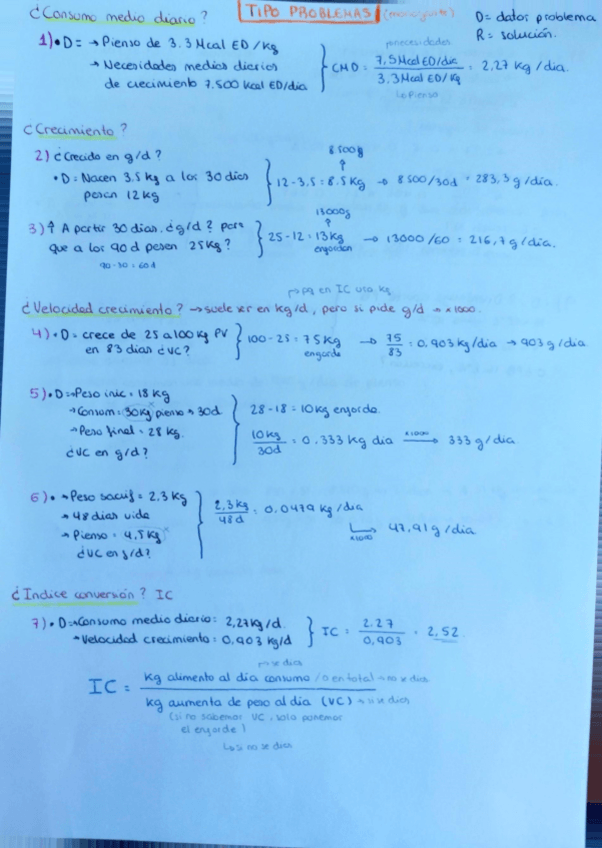 ¿Consumo medio diario?
TIPO PROBLEMAS (monogástr)
D= datos problema
R= solución.
1)• D= → Pienso de 3.3 Mcal ED/Kg
→ Necesidades medias diarias
de crecimiento 7.500 Kcal ED/día
necesidades
CMD = 7,5 Mcal ED/día / 3.3 Mcal ED/Kg = 2,27 Kg/día.
↳ Pienso
¿Crecimiento?
2) ¿Crecida en g/d?
• D= Nacen 3.5 kg a los 30 días
pesan 12 kg
8500g
↑
12-3,5 = 8.5 Kg → 8500/30d = 283,3 g/día.
3) ↑ A partir 30 dias. ¿g/d? para
que a los 90 d pesen 25 Kg?
90-30 = 60d
13000g
↑
25-12 = 13 Kg → 13000/60 = 216,7 g/día.
engorden
pq en IC usa kg
¿Velocidad crecimiento? → suele ser en kg/d, pero si pide g/d → ×1000.
4)• D= crece de 25 a 100 Kg PV
en 83 dias ¿VC?
100-25 = 75 Kg → 75/83 = 0,903 kg/dia → 903 g/dia.
engorde
5)• D= → Peso inic = 18 Kg
→ Consum = 30 Kg pienso → 30d
→ Peso final = 28 Kg.
¿VC en g/d?
28-18 = 10 Kg engorda.
10 Kg / 30d = 0.333 Kg dia ×1000 → 333 g/dia.
6)• → Peso sacrif = 2,3 Kg
→ 48 dias vida
→ Pienso = 4,5 Kg
¿VC en g/d?
2,3 Kg / 48 d = 0,0479 Kg/dia
↳ ×1000 47,91 g/dia.
¿Indice conversión? IC
7)• D= → Consumo medio diario: 2,27 kg/d.
→ Velocidad crecimiento: 0,903 kg/d
IC = 2.27 / 0,903 = 2,52
→ se dias
IC = Kg alimento al día consumo / o en total → no se dias
Kg aumenta de peso al dia (VC) → si se dias
(si no sabemos VC, solo ponemos
el engorde)
↳ si no se dias